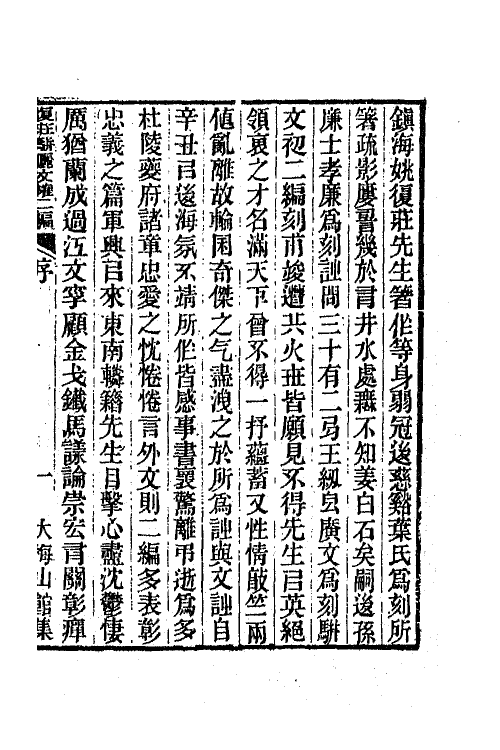 鎭海姚復莊先生箸作等身弱冠後慈谿葉氏爲刻所
箸疏影廔詈幾於言井水處無不知姜白石矣嗣後孫
廉士孝廉爲刻詶問三十有二弓王緅㠯廣文爲刻駢
文初二編刻甫竣遭兵火世皆願見不得先生㠯英絕
領袞之才名滿天下曾不得一抒蘊蓄又性情敲竺兩
値亂離故輪囷奇傑之气盡洩之於所爲詶與文詶自
辛丑㠯後海氛不靖所作皆感事書褱驚離弔逝爲多
杜陵夔府諸章忠愛之忱惓惓言外文則二編多表彰
忠義之篇軍興㠯來東南轔籍先生目擊心盡沈鬱悽
厲猶蘭成過江文筆顧金戈鐵馬議論崇宏言關彰癉
復莊駢儷文㩁二編 序 一 大梅山館集